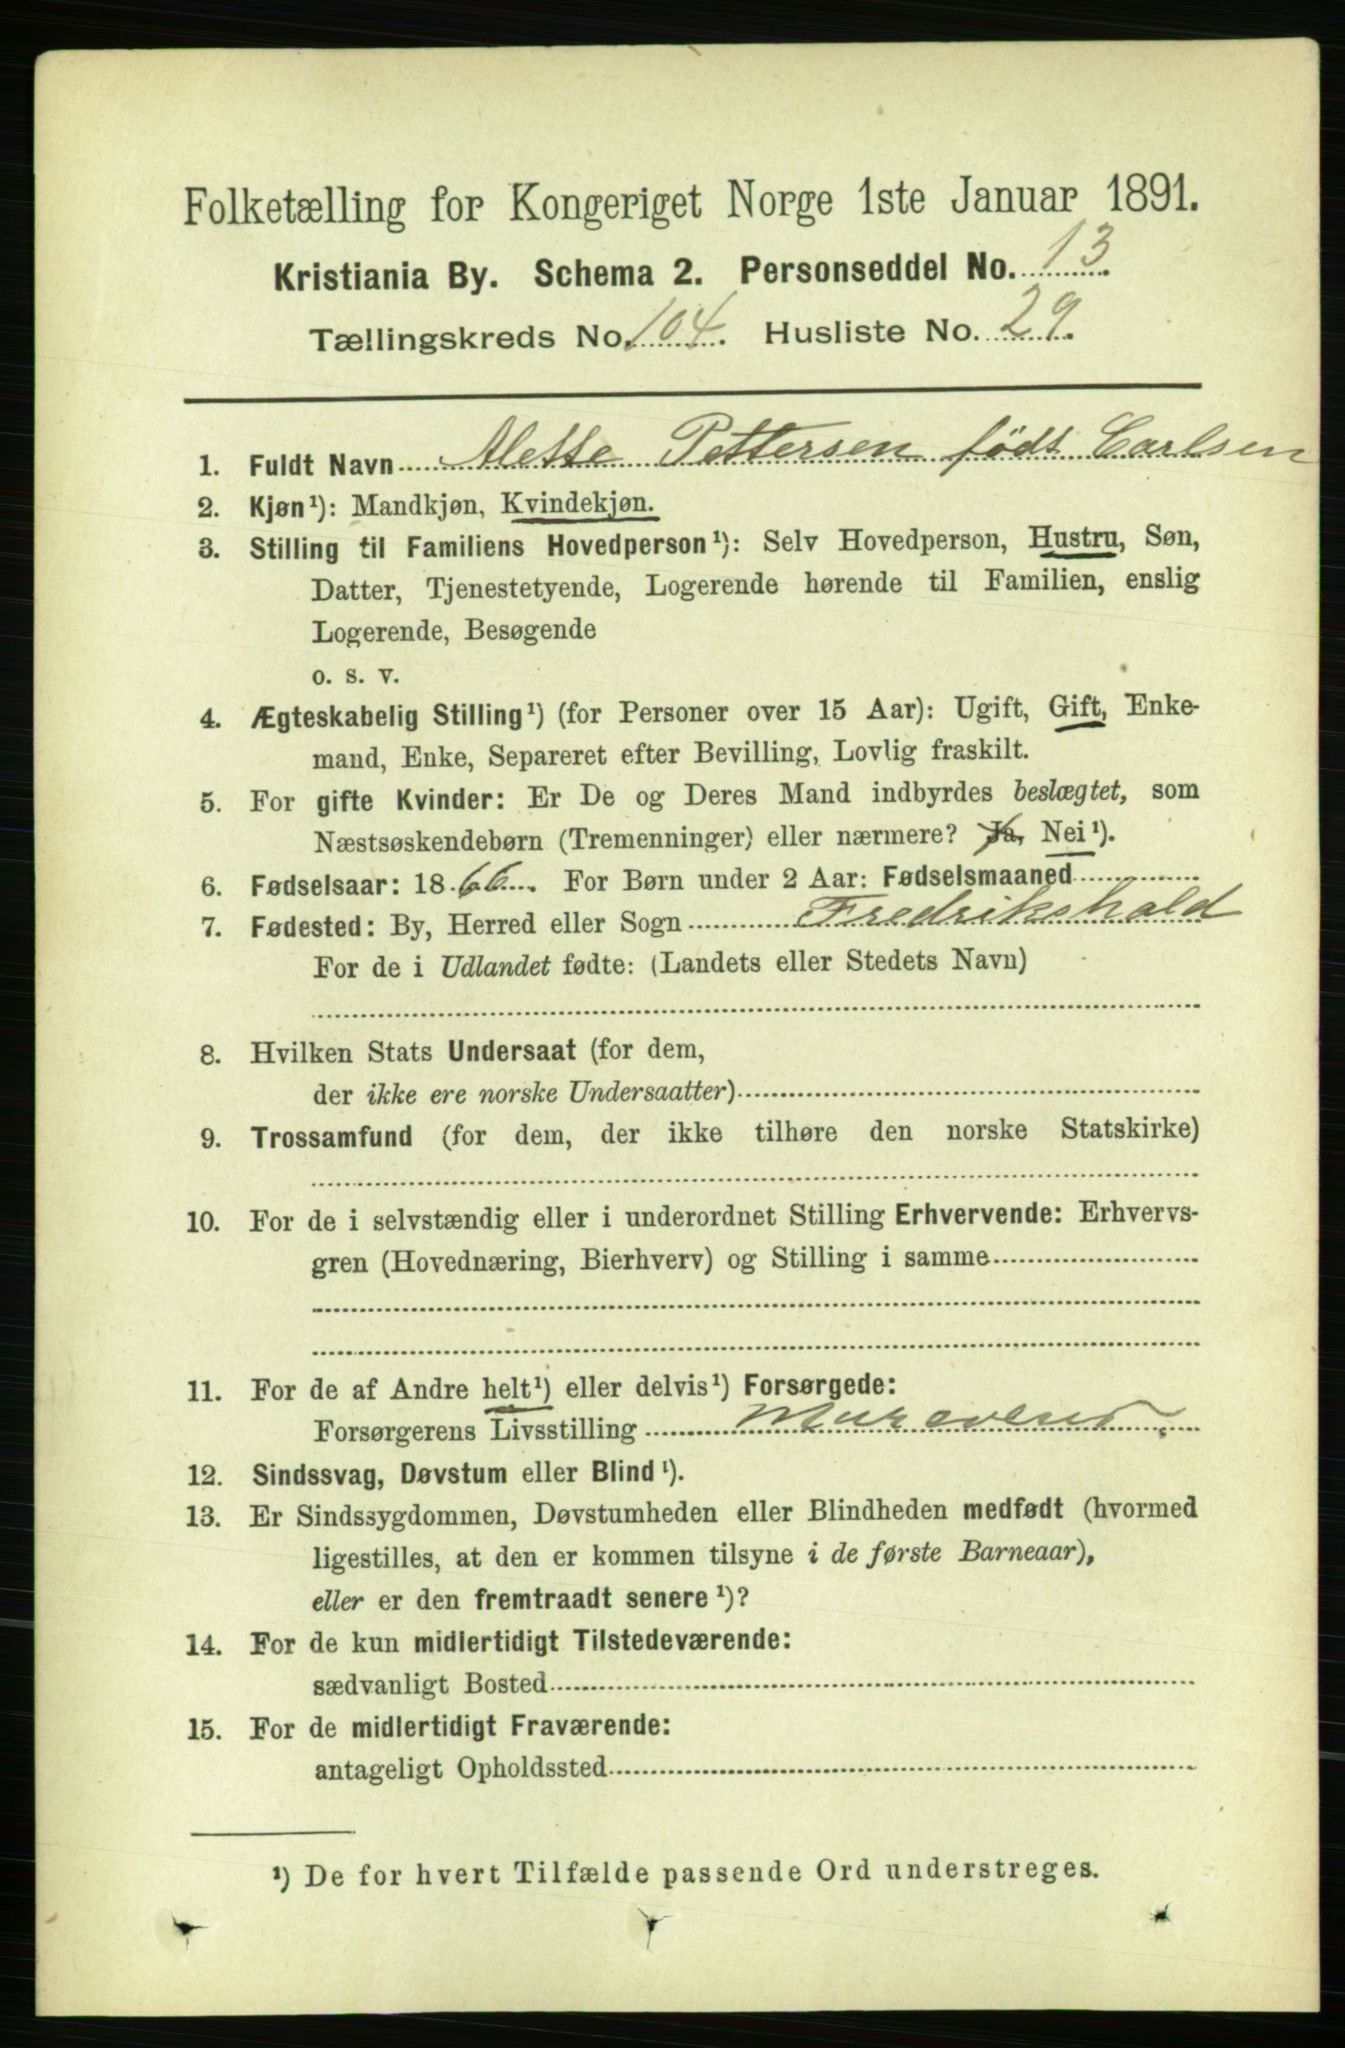 Folketælling for Kongeriget Norge 1ste Januar 1891.
Kristiania By. Schema 2. Personseddel No. 13
Tællingskreds No. 104. Husliste No. 29.
1. Fuldt Navn Alette Pettersen født Carlsen
2. Kjøn¹): Mandkjøn, Kvindekjøn.
3. Stilling til Familiens Hovedperson¹): Selv Hovedperson, Hustru, Søn,
Datter, Tjenestetyende, Logerende hørende til Familien, enslig
Logerende, Besøgende
o. s. v.
4. Ægteskabelig Stilling¹) (for Personer over 15 Aar): Ugift, Gift, Enke-
mand, Enke, Separeret efter Bevilling, Lovlig fraskilt.
5. For gifte Kvinder: Er De og Deres Mand indbyrdes beslægtet, som
Næstsøskendebørn (Tremenninger) eller nærmere? Ja, Nei¹).
6. Fødselsaar: 1866. For Børn under 2 Aar: Fødselsmaaned
7. Fødested: By, Herred eller Sogn Fredrikshald
For de i Udlandet fødte: (Landets eller Stedets Navn)
8. Hvilken Stats Undersaat (for dem,
der ikke ere norske Undersaatter)
9. Trossamfund (for dem, der ikke tilhøre den norske Statskirke)
10. For de i selvstændig eller i underordnet Stilling Erhvervende: Erhvervs-
gren (Hovednæring, Bierhverv) og Stilling i samme
11. For de af Andre helt¹) eller delvis¹) Forsørgede:
Forsørgerens Livsstilling
12. Sindssvag, Døvstum eller Blind¹).
13. Er Sindssygdommen, Døvstumheden eller Blindheden medfødt (hvormed
ligestilles, at den er kommen tilsyne i de første Barneaar),
eller er den fremtraadt senere¹)?
14. For de kun midlertidigt Tilstedeværende:
sædvanligt Bosted
15. For de midlertidigt Fraværende:
antageligt Opholdssted
¹) De for hvert Tilfælde passende Ord understreges.